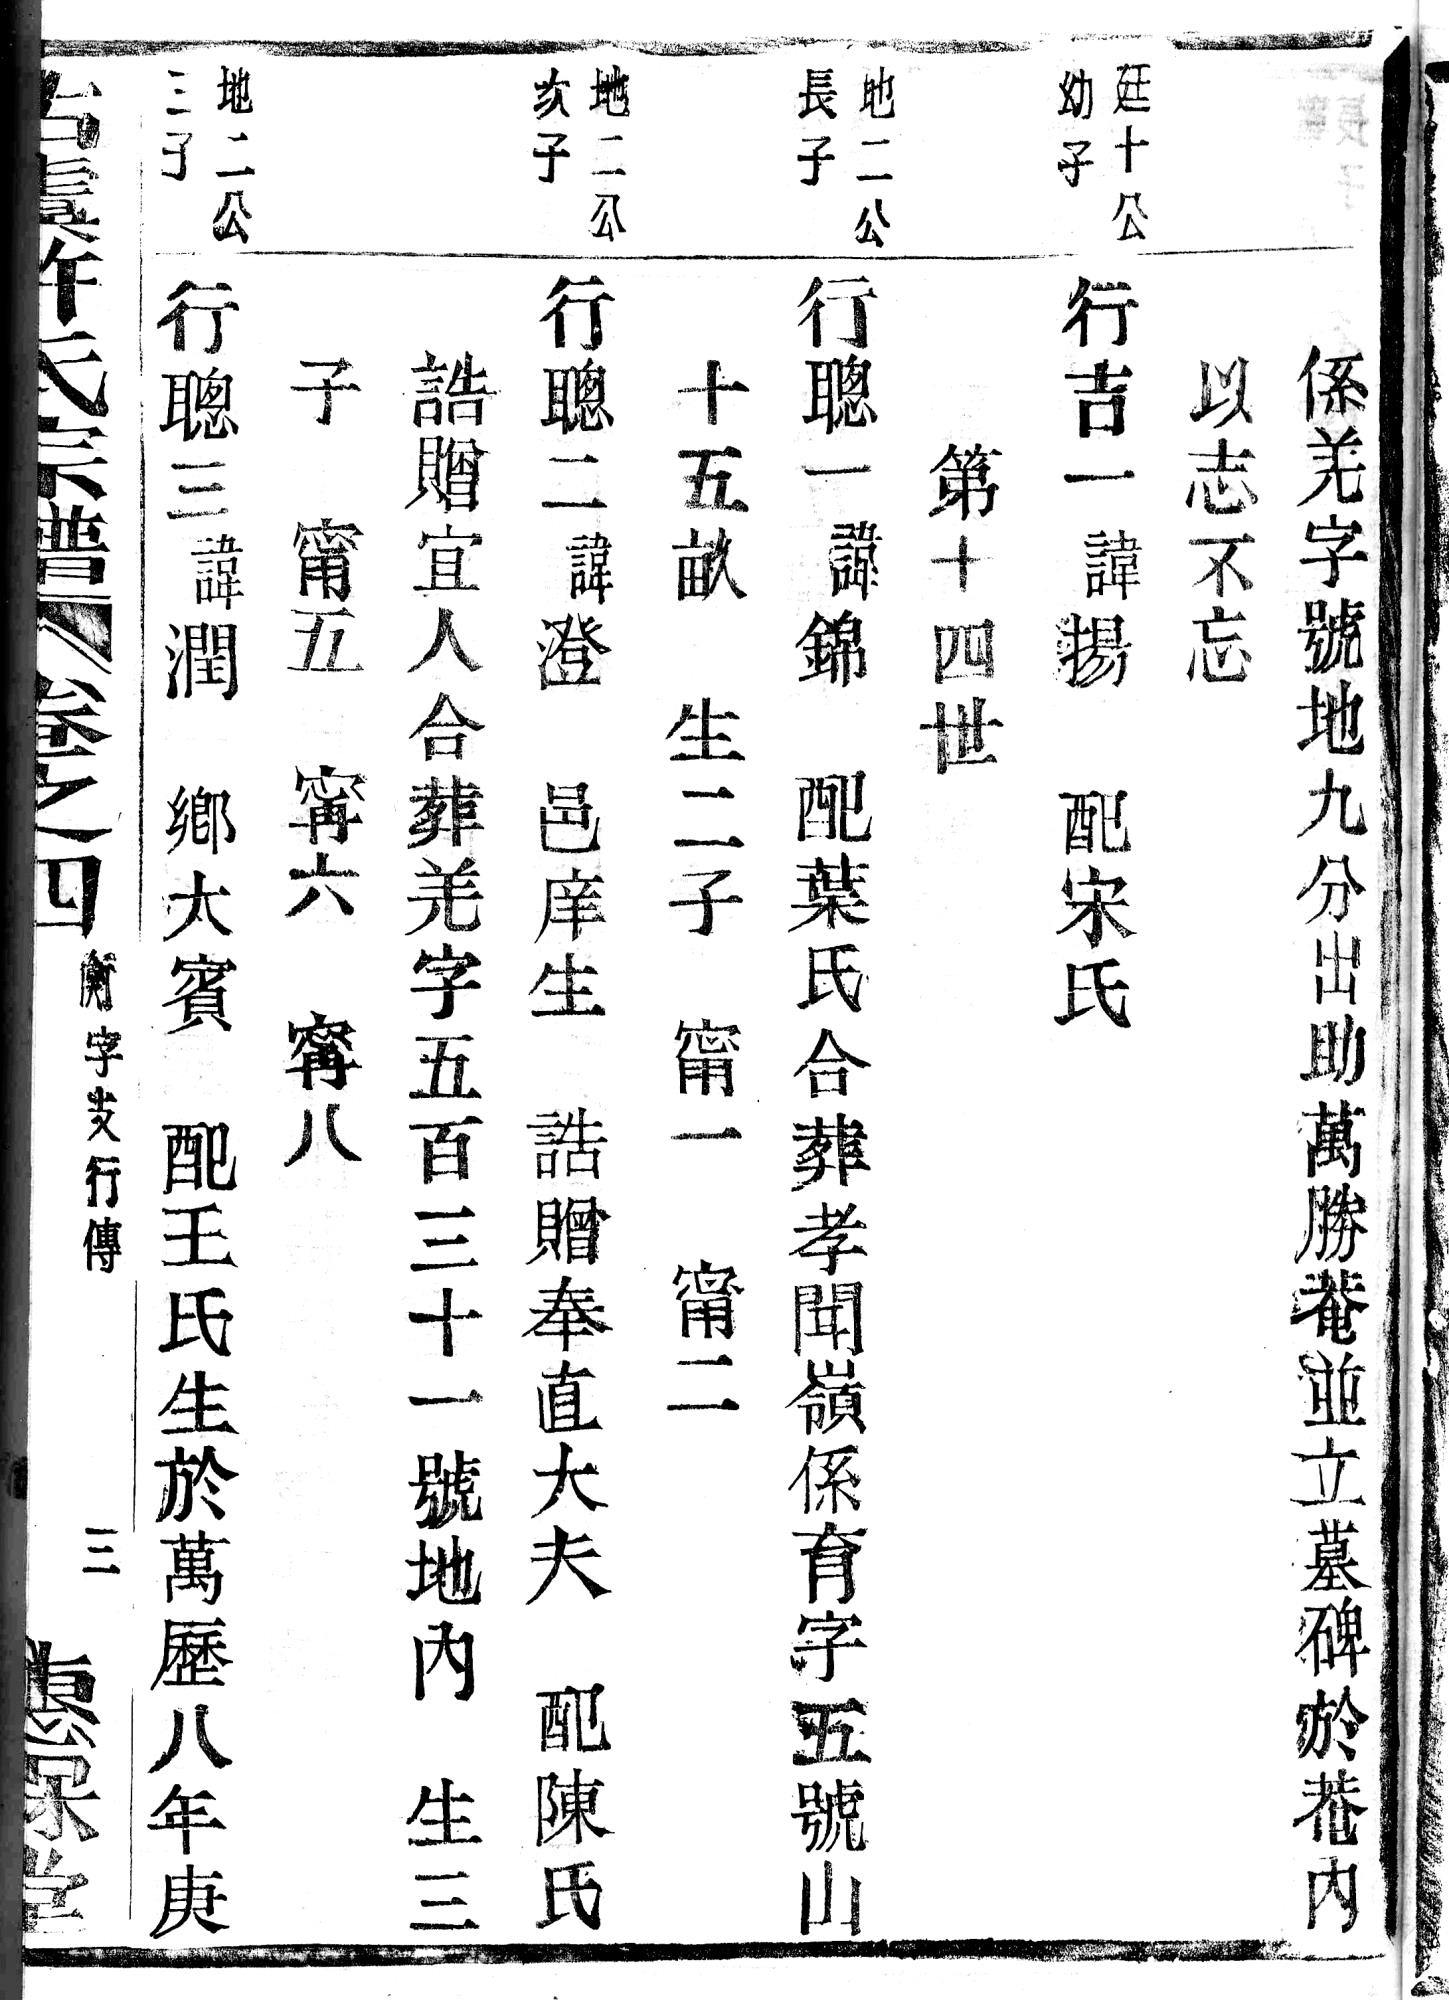 係羌字號地九分出助萬勝菴並立墓碑於菴內
以志不忘
廷十公
幼子
行吉一諱揚　配宋氏
第十四世
地二公
長子
行聰一諱錦　配葉氏合葬孝聞嶺係育字五號山
十五畝　生二子　甯一　甯二
地二公
次子
行聰二諱澄　邑庠生　誥贈奉直大夫　配陳氏
誥贈宜人合葬羌字五百三十一號地內　生三
子　甯五　甯六　甯八
地二公
三子
行聰三諱潤　鄉大賓　配王氏生於萬歷八年庚
古虞許氏宗譜　卷之四　衡字支行傳　三　惠保堂